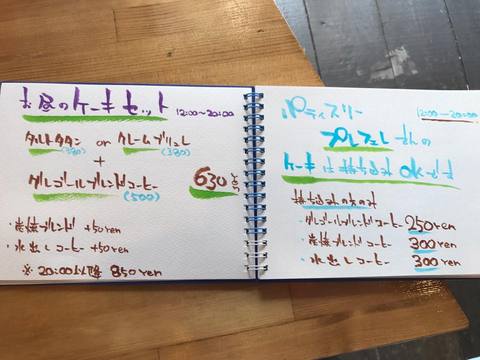 お昼のケーキセット 12:00~20:00
タルトタタン or クレームブリュレ
(380) (380)
+
グルゴールブレンドコーヒー
(500)
630 yen
・炭焼ブレンド +50yen
・水出しコーヒー +50yen
※ 20:00以降 850yen
パティスリー 12:00~20:00
さんの
ケーキは持ち込みOKです
持ち込みの方のみ
・グルゴールブレンドコーヒー 250yen
・炭焼ブレンドコーヒー 300yen
・水出しコーヒー 300yen